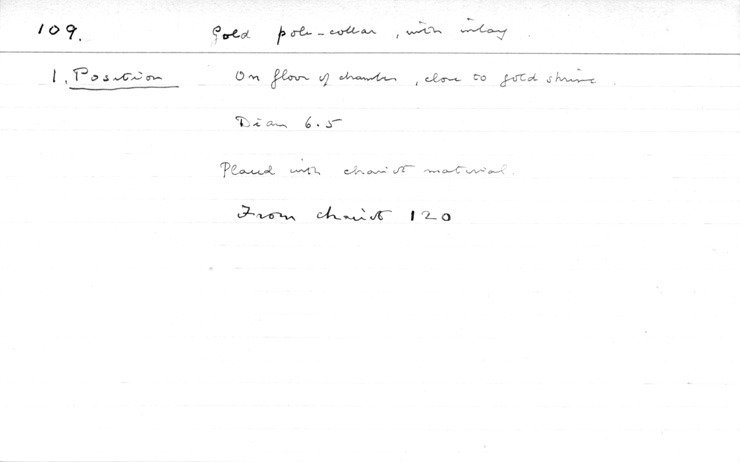 109. Gold pole-collar, with inlay.
1. Position On floor of chamber, close to gold shrine.
Diam 6.5
Placed with chariot material.
From chariot 120